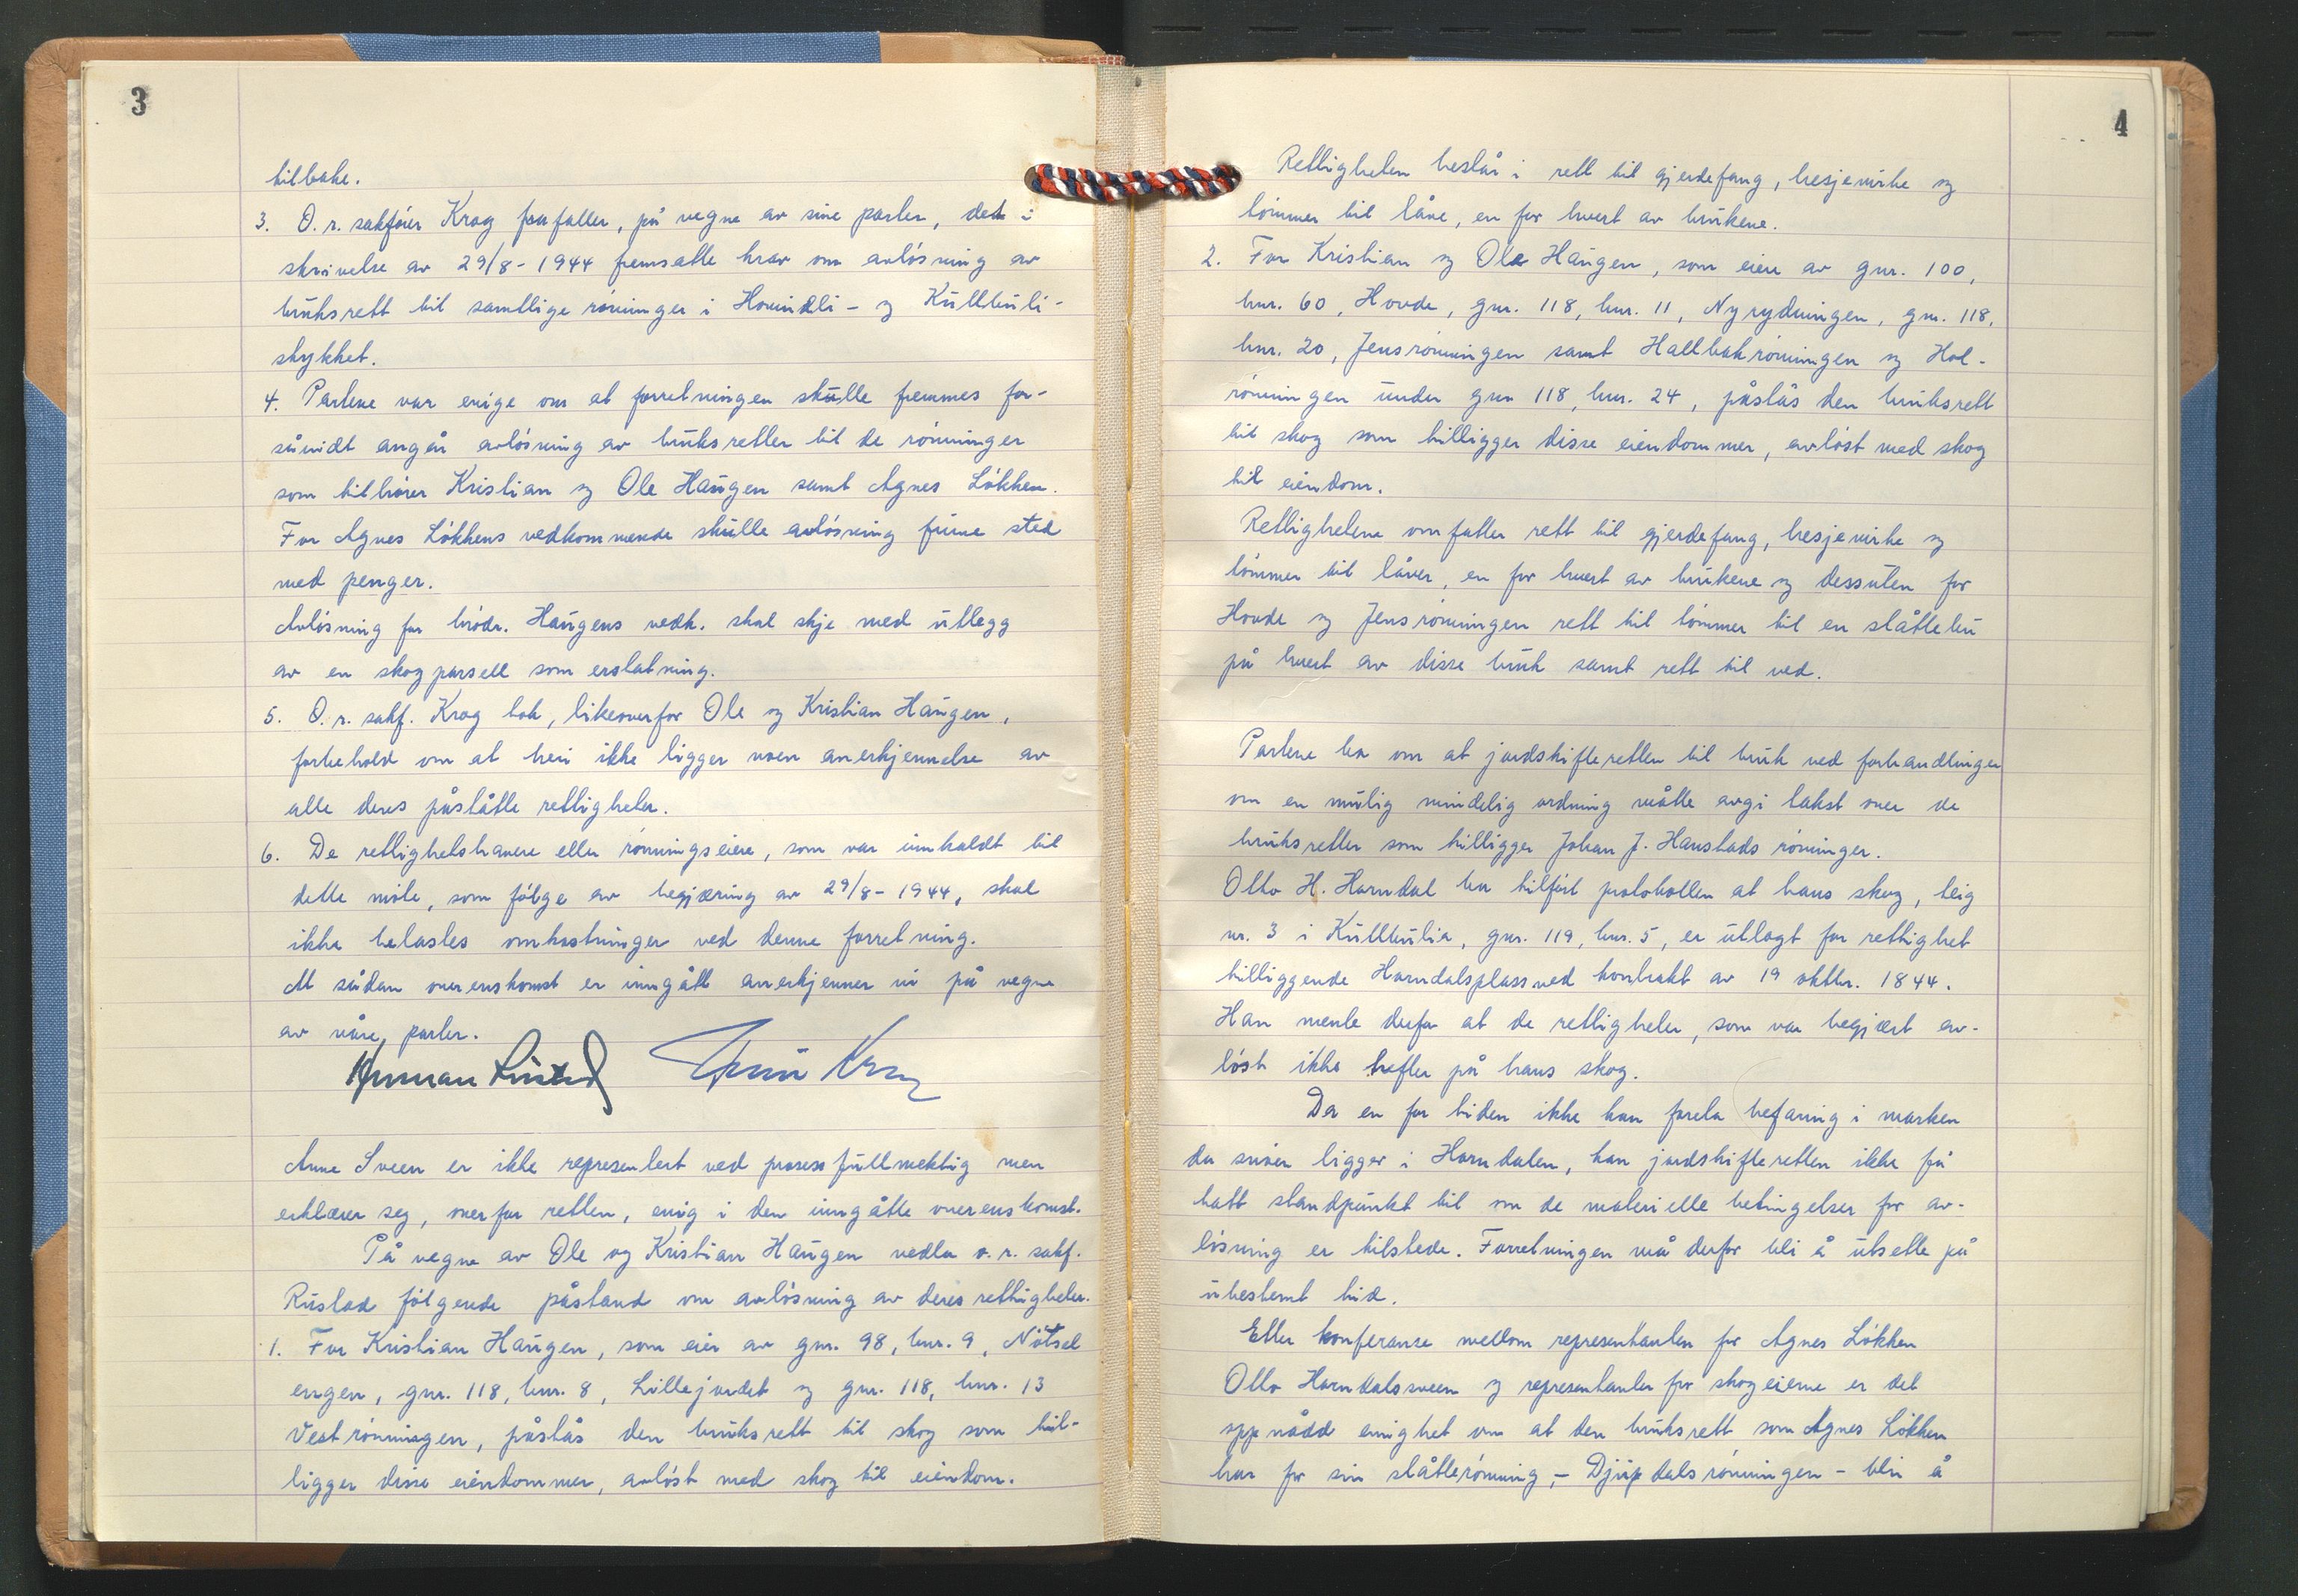 3
tilbake.
3. O. r. sakfører Krog frafaller, på vegne av sine parter, det i
skrivelse av 29/8-1944 fremsatte krav om avløsning av
bruksrett til samtlige rønninger i Hornindli- og Kullbuli-
stykket.
4. Partene var enige om at forretningen skulle fremmes for-
såvidt angår avløsning av bruksretter til de rønninger
som tilhører Kristian og Ole Haugen samt Agnes Løkken.
For Agnes Løkkens vedkommende skulle avløsning finne sted
med penger.
Avløsning for brødr. Haugens vedk. skal skje med utlegg
av en skogparsell som erstatning.
5. O. r. sakf. Krog tok, likeoverfor Ole og Kristian Haugen,
forbehold om at heri ikke ligger noen anerkjennelse av
alle deres påståtte rettigheter.
6. De rettighetshavere eller rønningseiere, som var innkaldt til
dette møte, som følge av begjæring av 29/8-1944, skal
ikke belastes omkostninger ved denne forretning.
At sådan overenskomst er inngått anerkjenner vi på vegne
av våre parter.
Herman
Krog
Anne Sveen er ikke representert ved prosessfullmektig men
erklærer seg, overfor retten, enig i den inngåtte overenskomst.
På vegne av Ole og Kristian Haugen nedla o. r. sakf.
Rustad følgende påstand om avløsning av deres rettigheter.
1. For Kristian Haugen, som eier av gnr. 98, bnr. 9, Nøtsel
engen, gnr. 118, bnr. 8, Lillejordet og gnr. 118, bnr. 13
Vestrønningen, påstås den bruksrett til skog som til-
ligger disse eiendommer, avløst med skog til eiendom.
4
Rettigheten består i rett til gjerdefang, hesjevirke og
tømmer til låve, en for hvert av brukene.
2. For Kristian og Ole Haugen, som eiere av gnr. 100,
bnr. 60, Hovde, gnr. 118, bnr. 11, Nyrydningen, gnr. 118,
bnr. 20, Jensrønningen samt Hallbakrønningen og Hol-
rønningen under gnr 118, bnr. 24, påstås den bruksrett
til skog som tilligger disse eiendommer, avløst med skog
til eiendom.
Rettighetene omfatter rett til gjerdefang, hesjevirke og
tømmer til låver, en for hvert av brukene og dessuten for
Hovde og Jensrønningen rett til tømmer til en slåttebu
på hvert av disse bruk samt rett til ved.
Partene ba om at jordskifteretten til bruk ved forhandlinger
om en mulig mindelig ordning måtte avgi takst over de
bruksretter som tilligger Johan J. Hanstads rønninger.
Otto H. Horndal ba tilført protokollen at hans skog, teig
nr. 3 i Kullbulia, gnr. 119, bnr. 5, er utlagt for rettighet
tilliggende Horndalsplass ved kontrakt av 19 oktbr. 1844.
Han mente derfor at de rettigheter, som var begjært av-
løst ikke hefter på hans skog.
Da en for tiden ikke kan foreta befaring i marken
da snøen ligger i Horndalen, kan jordskifteretten ikke få
tatt standpunkt til om de materielle betingelser for av-
løsning er tilstede. Forretningen må derfor bli å utsette på
ubestemt tid.
Etter konferanse mellom representanten for Agnes Løkken
Otto Horndalsveen og representanter for skogeierne er det
oppnådd enighet om at den bruksrett som Agnes Løkken
har for sin slåtterønning, - Djupdalsrønningen - blir å